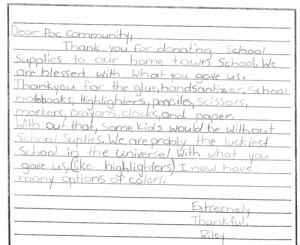 Dear Pac Community,
Thank you for donating School
Supplies to our home town School. We
are blessed with what you gave us.
Thankyou for the glue, handsantizer, School
notebooks, Highlighters, penciles, scissors,
markers, crayons, clocks, and paper.
With out that, some kids would be without
School Suplies. We are probly the luckiest
School in the universe! With what you
gave us, (like highlighters) I now have
many options of colors.
Extremely
Thankful,
Riley